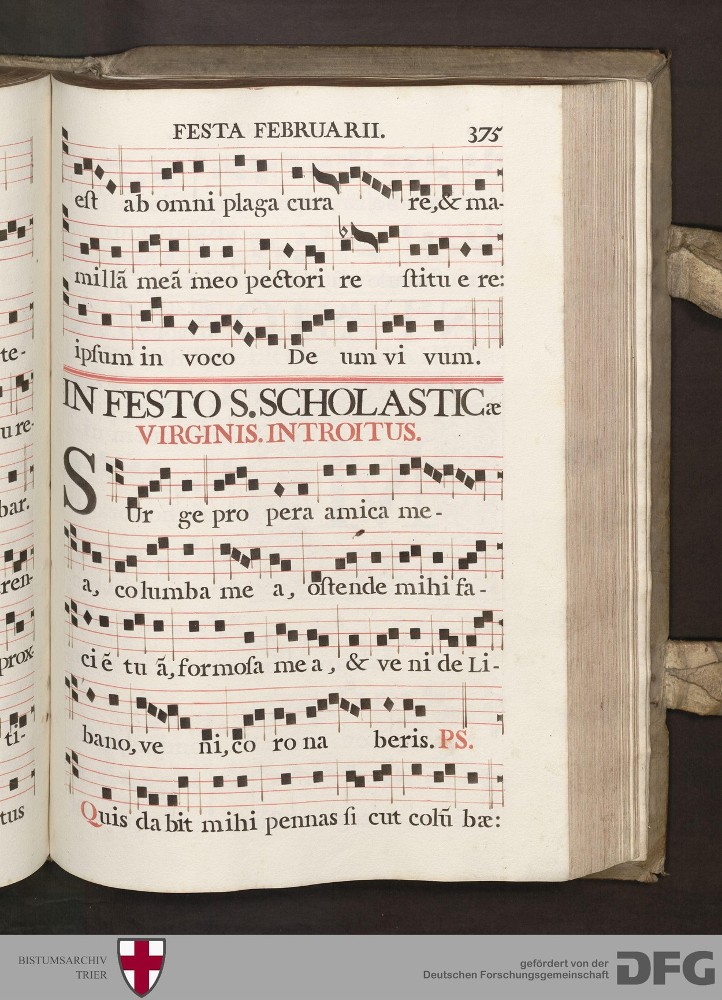 FESTA FEBRUARII. 375
eſt ab omni plaga cura re, & ma-
millã meã meo pectori re ſtitu e re:
ipſum in voco De um vi vum.
IN FESTO S. SCHOLASTICæ
VIRGINIS. INTROITUS.
SUr ge pro pera amica me-
a, columba me a, oſtende mihi fa-
ci ẽ tu ã, formoſa me a, & ve ni de Li-
bano, ve ni, co ro na beris. PS.
Quis da bit mihi pennas ſi cut colũ bæ:
te-
u re-
bar.
ren-
prox-
ti-
tus
BISTUMSARCHIV
TRIER
gefördert von der
Deutschen Forschungsgemeinschaft
DFG